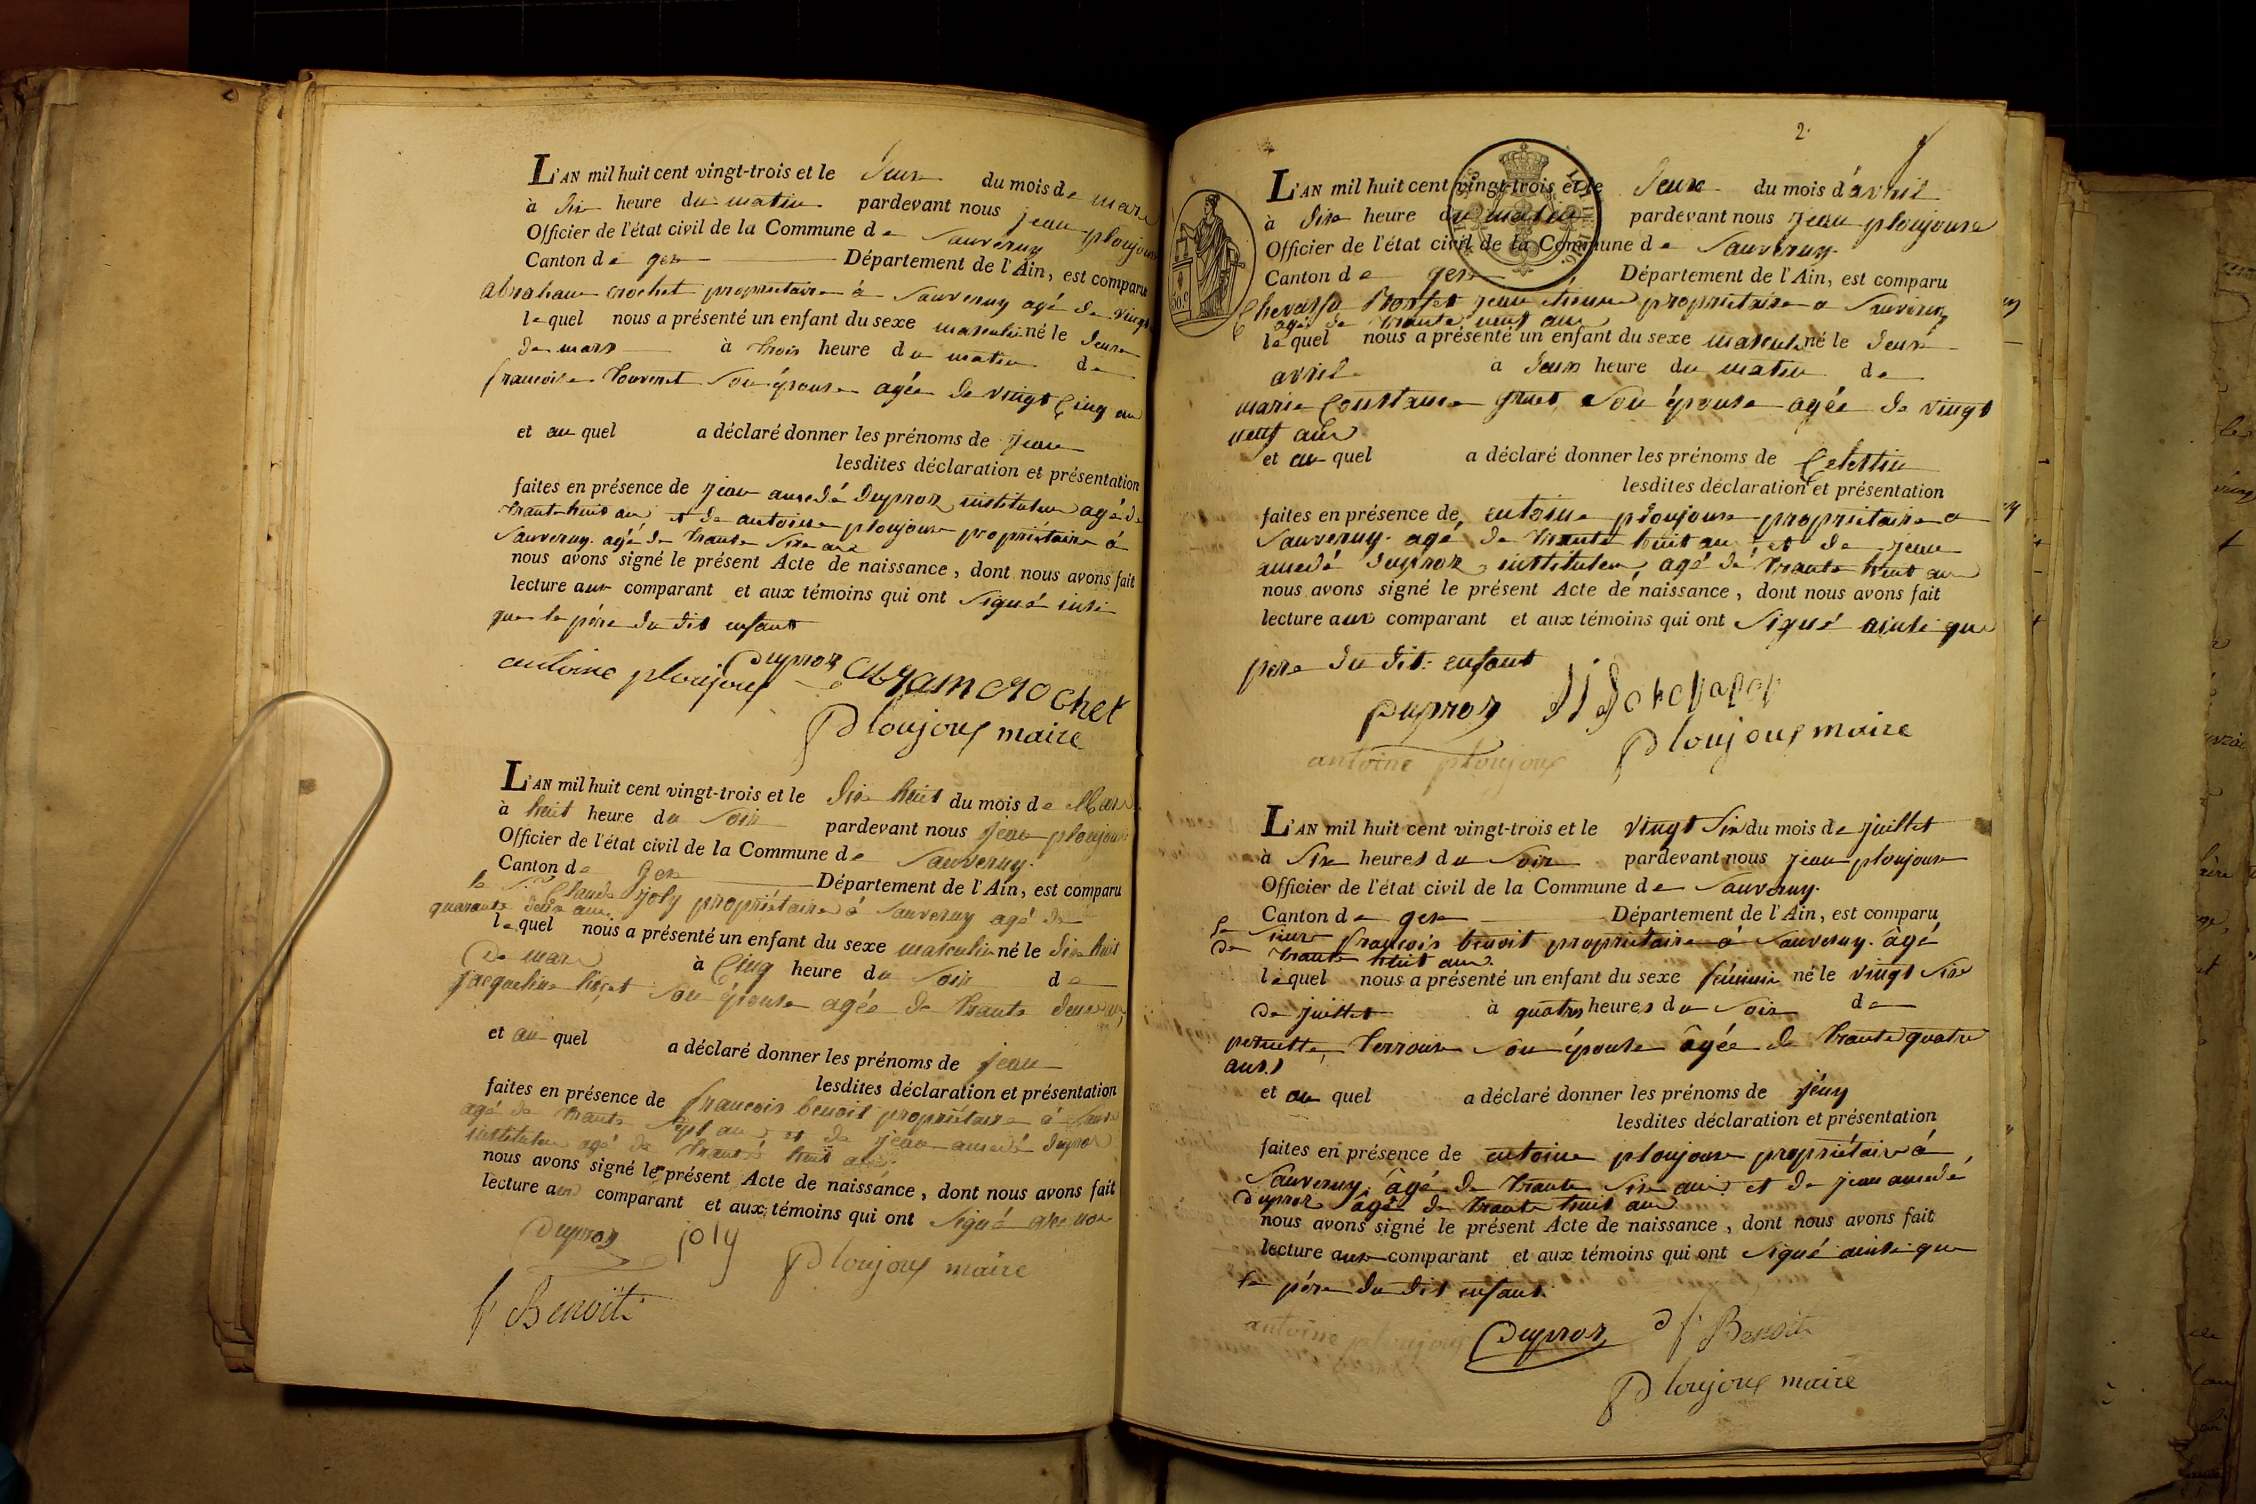 L'AN mil huit cent vingt-trois et le deux du mois de mars
à dix heure du matin pardevant nous jean ploujoux
Officier de l'état civil de la Commune de Sauverny
Canton de gex Département de l'Ain, est comparu
abraham crochet propriétaire à Sauverny agé de vingt
lequel nous a présenté un enfant du sexe masculin né le deux
de mars à trois heure du matin de
francoise Son épouse agée de vingt Cinq an
et au quel a déclaré donner les prénoms de jean
lesdites déclaration et présentation
faites en présence de jean amedé Duproz instituteur agé de
trante huit an et de antoine ploujoux propriétaire à
Sauverny. agé de trante Six ans
nous avons signé le présent Acte de naissance, dont nous avons fait
lecture aux comparant et aux témoins qui ont Signé insi
que le pére du dit enfant
Duproz
antoine ploujoux abram crochet
Ploujoux maire
L'AN mil huit cent vingt-trois et le dix huit du mois de Mars
à huit heure du Soir pardevant nous jean ploujoux
Officier de l'état civil de la Commune de Sauverny.
Canton de Gex Département de l'Ain, est comparu
le Sr Claude joly propriétaire à Sauverny agé de
quarante deux ans
lequel nous a présenté un enfant du sexe masculin né le dix huit
De mars à Cinq heure du Soir de
jacqueline Son épouse agée de trante deux ans
et au quel a déclaré donner les prénoms de jean
lesdites déclaration et présentation
faites en présence de francois benoit propriétaire à
agé de trante Sept an et de jean amedé Duproz
instituteur agé de trante huit ans
nous avons signé le présent Acte de naissance, dont nous avons fait
lecture aux comparant et aux témoins qui ont Signé avec nous
Duproz joly Ploujoux maire
f Benoit
2.
L'AN mil huit cent vingt-trois et le deux du mois d'avril
à dix heure du matin pardevant nous jean ploujoux
Officier de l'état civil de la Commune de Sauverny.
Canton de gex Département de l'Ain, est comparu
jean propriétaire a Sauverny
agé de trante neuf ans
lequel nous a présenté un enfant du sexe masculin né le deux
avril à deux heure du matin de
marie Constance gruet Son épouse agée de vingt
neuf ans
et au quel a déclaré donner les prénoms de Celestin
lesdites déclaration et présentation
faites en présence de antoine ploujoux propriétaire a
Sauverny. agé de trante huit an et de jean
amedé duproz, instituteur agé de trante huit an
nous avons signé le présent Acte de naissance, dont nous avons fait
lecture aux comparant et aux témoins qui ont Signé ainsi que
pere du dit enfant
Duproz
antoine ploujoux Ploujoux maire
L'AN mil huit cent vingt-trois et le vingt Six du mois de juillet
à Six heures du Soir pardevant nous jean ploujoux
Officier de l'état civil de la Commune de Sauverny.
Canton de gex Département de l'Ain, est comparu
Le Sieur francois benoit propriétaire à Sauverny. âgé
de trante huit ans
lequel nous a présenté un enfant du sexe féminin né le vingt Six
De juillet à quatre heures du Soir de
pernette Terroux Son épouse âgée de trante quatre
ans
et au quel a déclaré donner les prénoms de jény
lesdites déclaration et présentation
faites en présence de antoine ploujoux propriétaire à
Sauverny. âgé de trante Six ans et de jean amedé
Duproz âgé de trante huit ans
nous avons signé le présent Acte de naissance, dont nous avons fait
lecture aux comparant et aux témoins qui ont Signé ainsi que
le pére du dit enfant.
antoine ploujoux Duproz f Benoit
Ploujoux maire